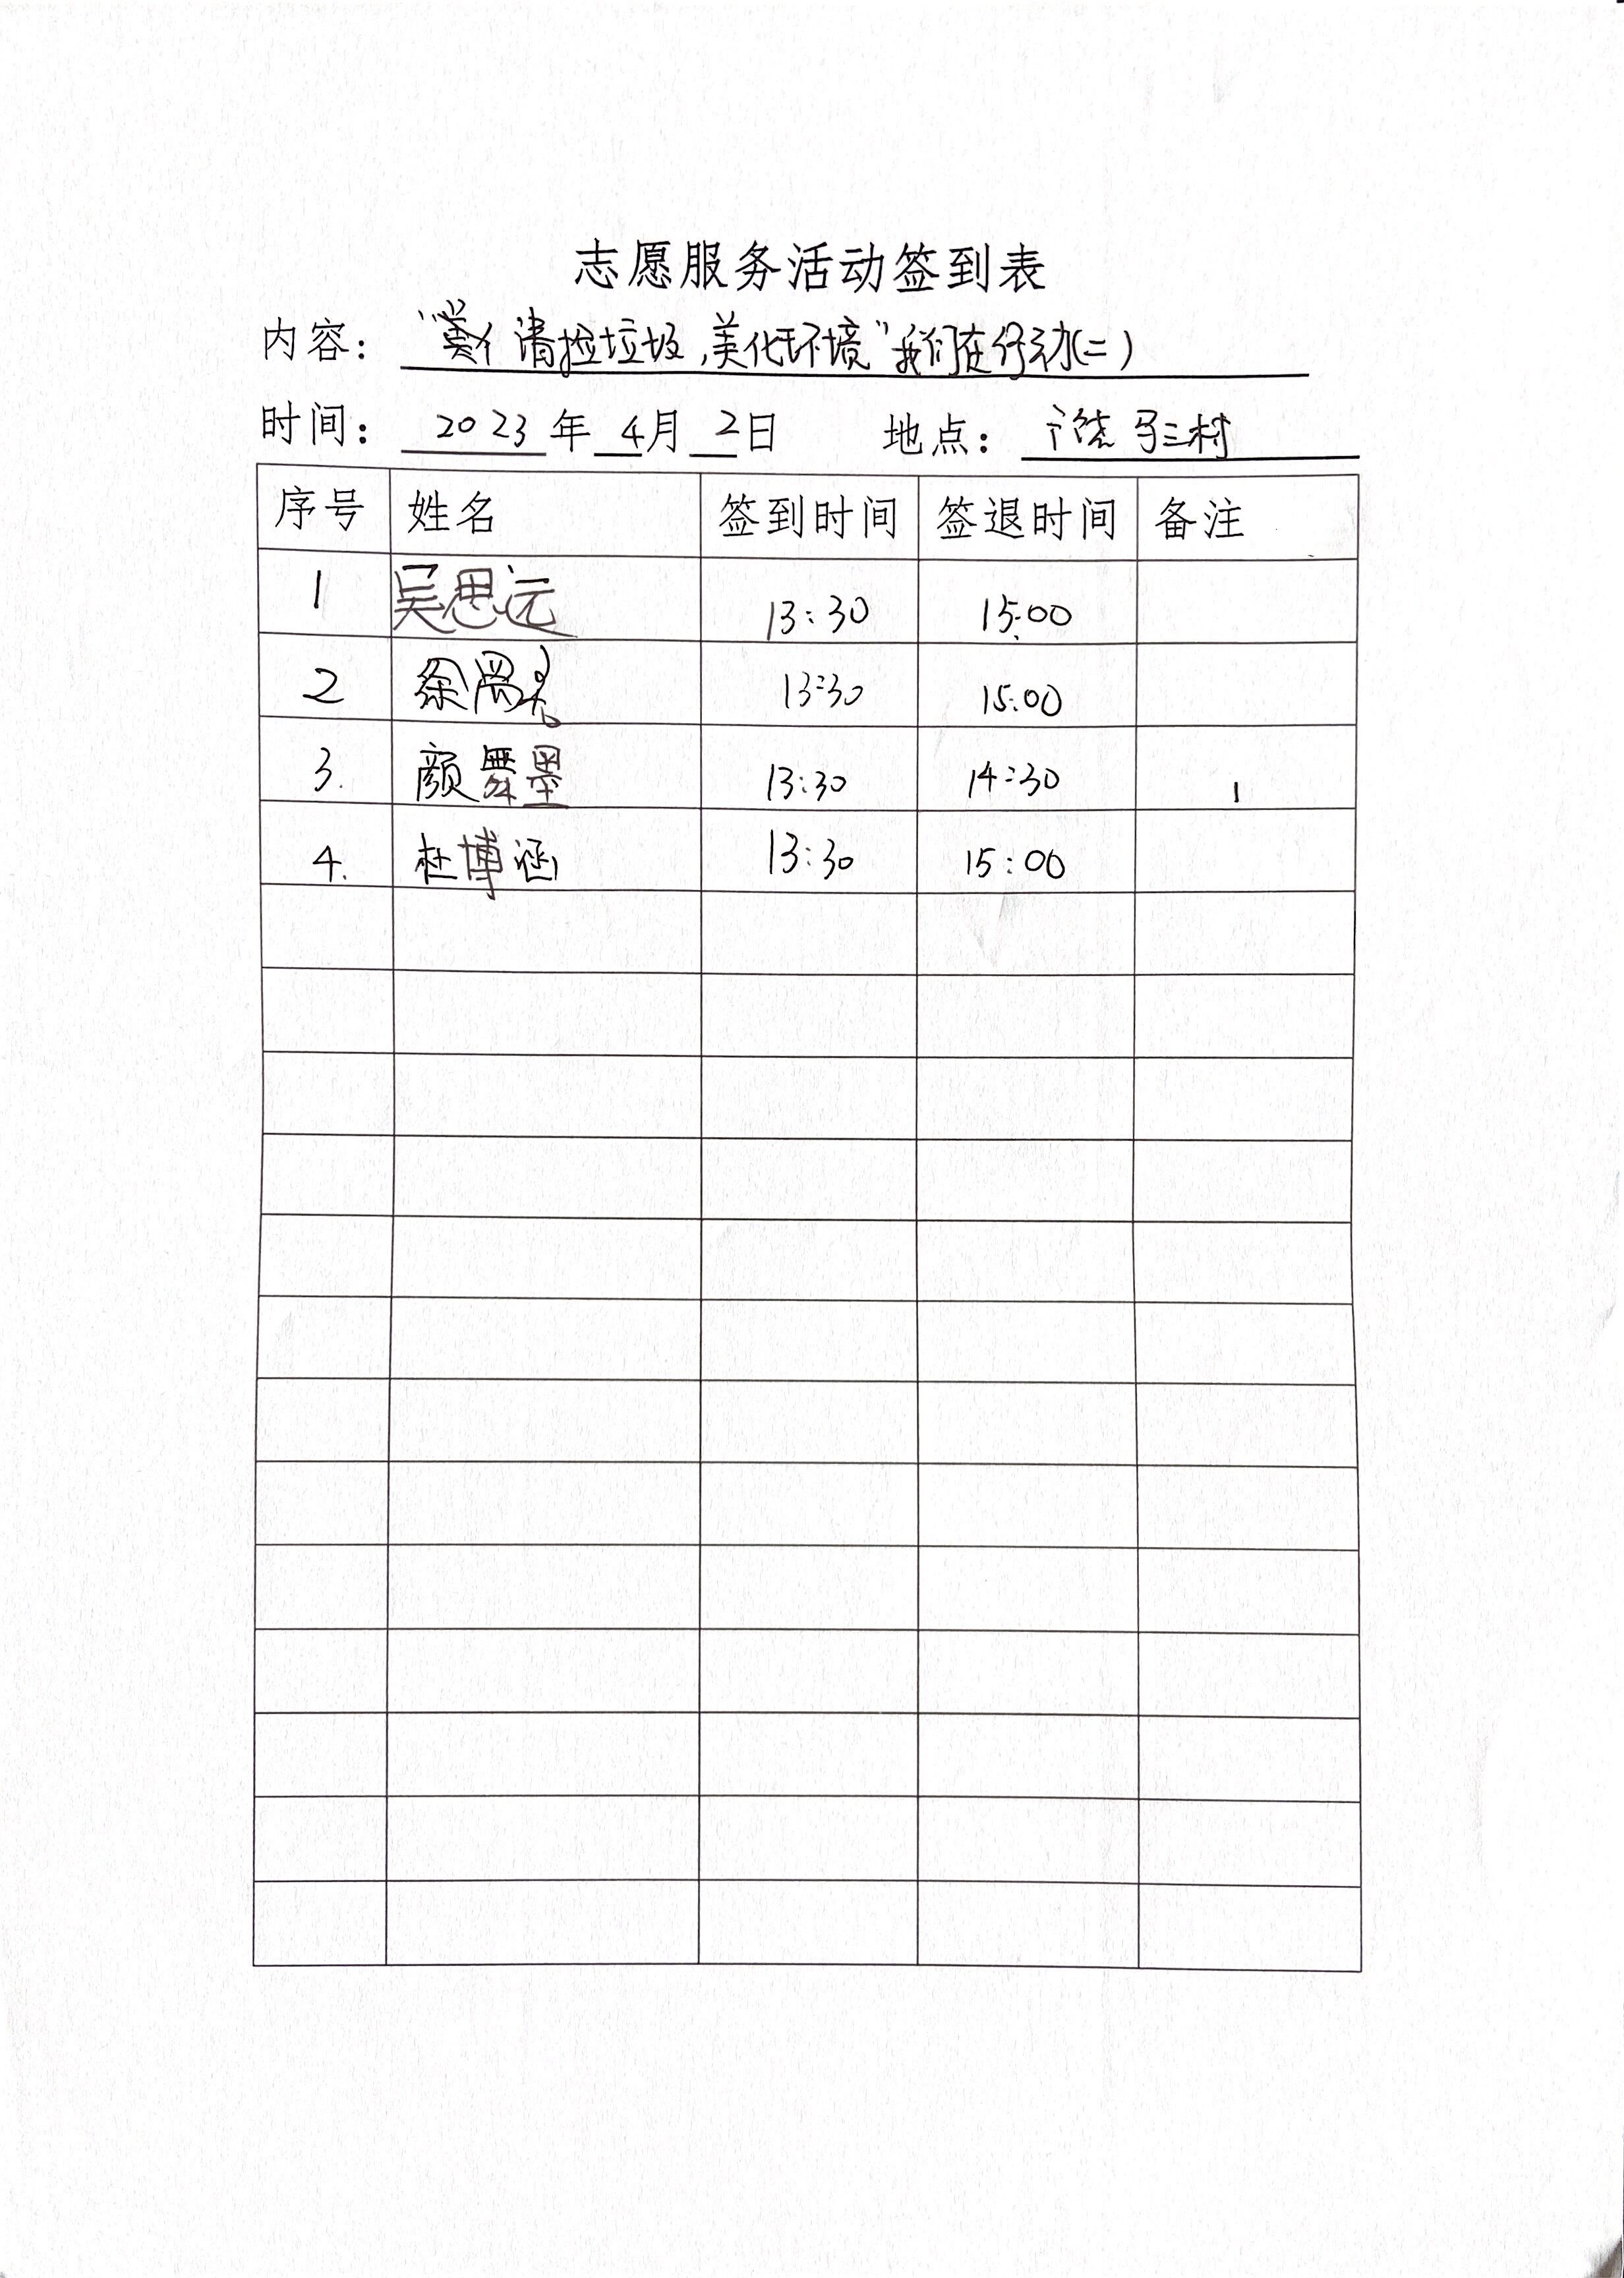 志愿服务活动签到表
内容： 清捡垃圾，美化环境”我们在行动(二)
时间： 2023年 4月 2日 地点： 马三村
序号 姓名 签到时间 签退时间 备注
1 吴思远 13:30 15:00
2 13:30 15:00
3. 颜舞墨 13:30 14:30
4. 杜博涵 13:30 15:00